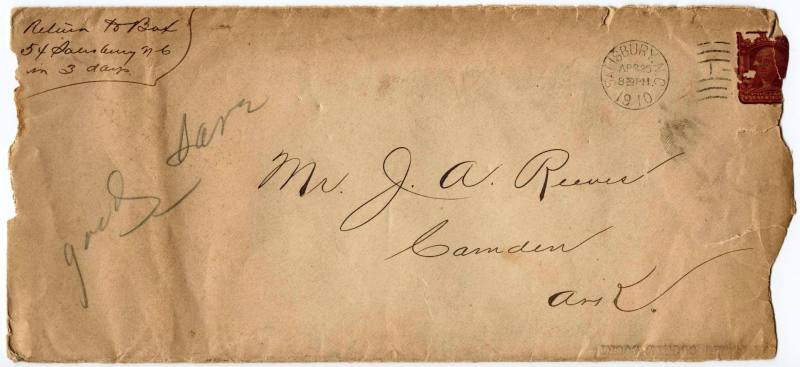 Return to Box
54 Salisbury N C
in 3 days
SALISBURY, N.C.
APR 25
8 30 PM
1910
Mr. J. A. Reeves
Camden
Ark.